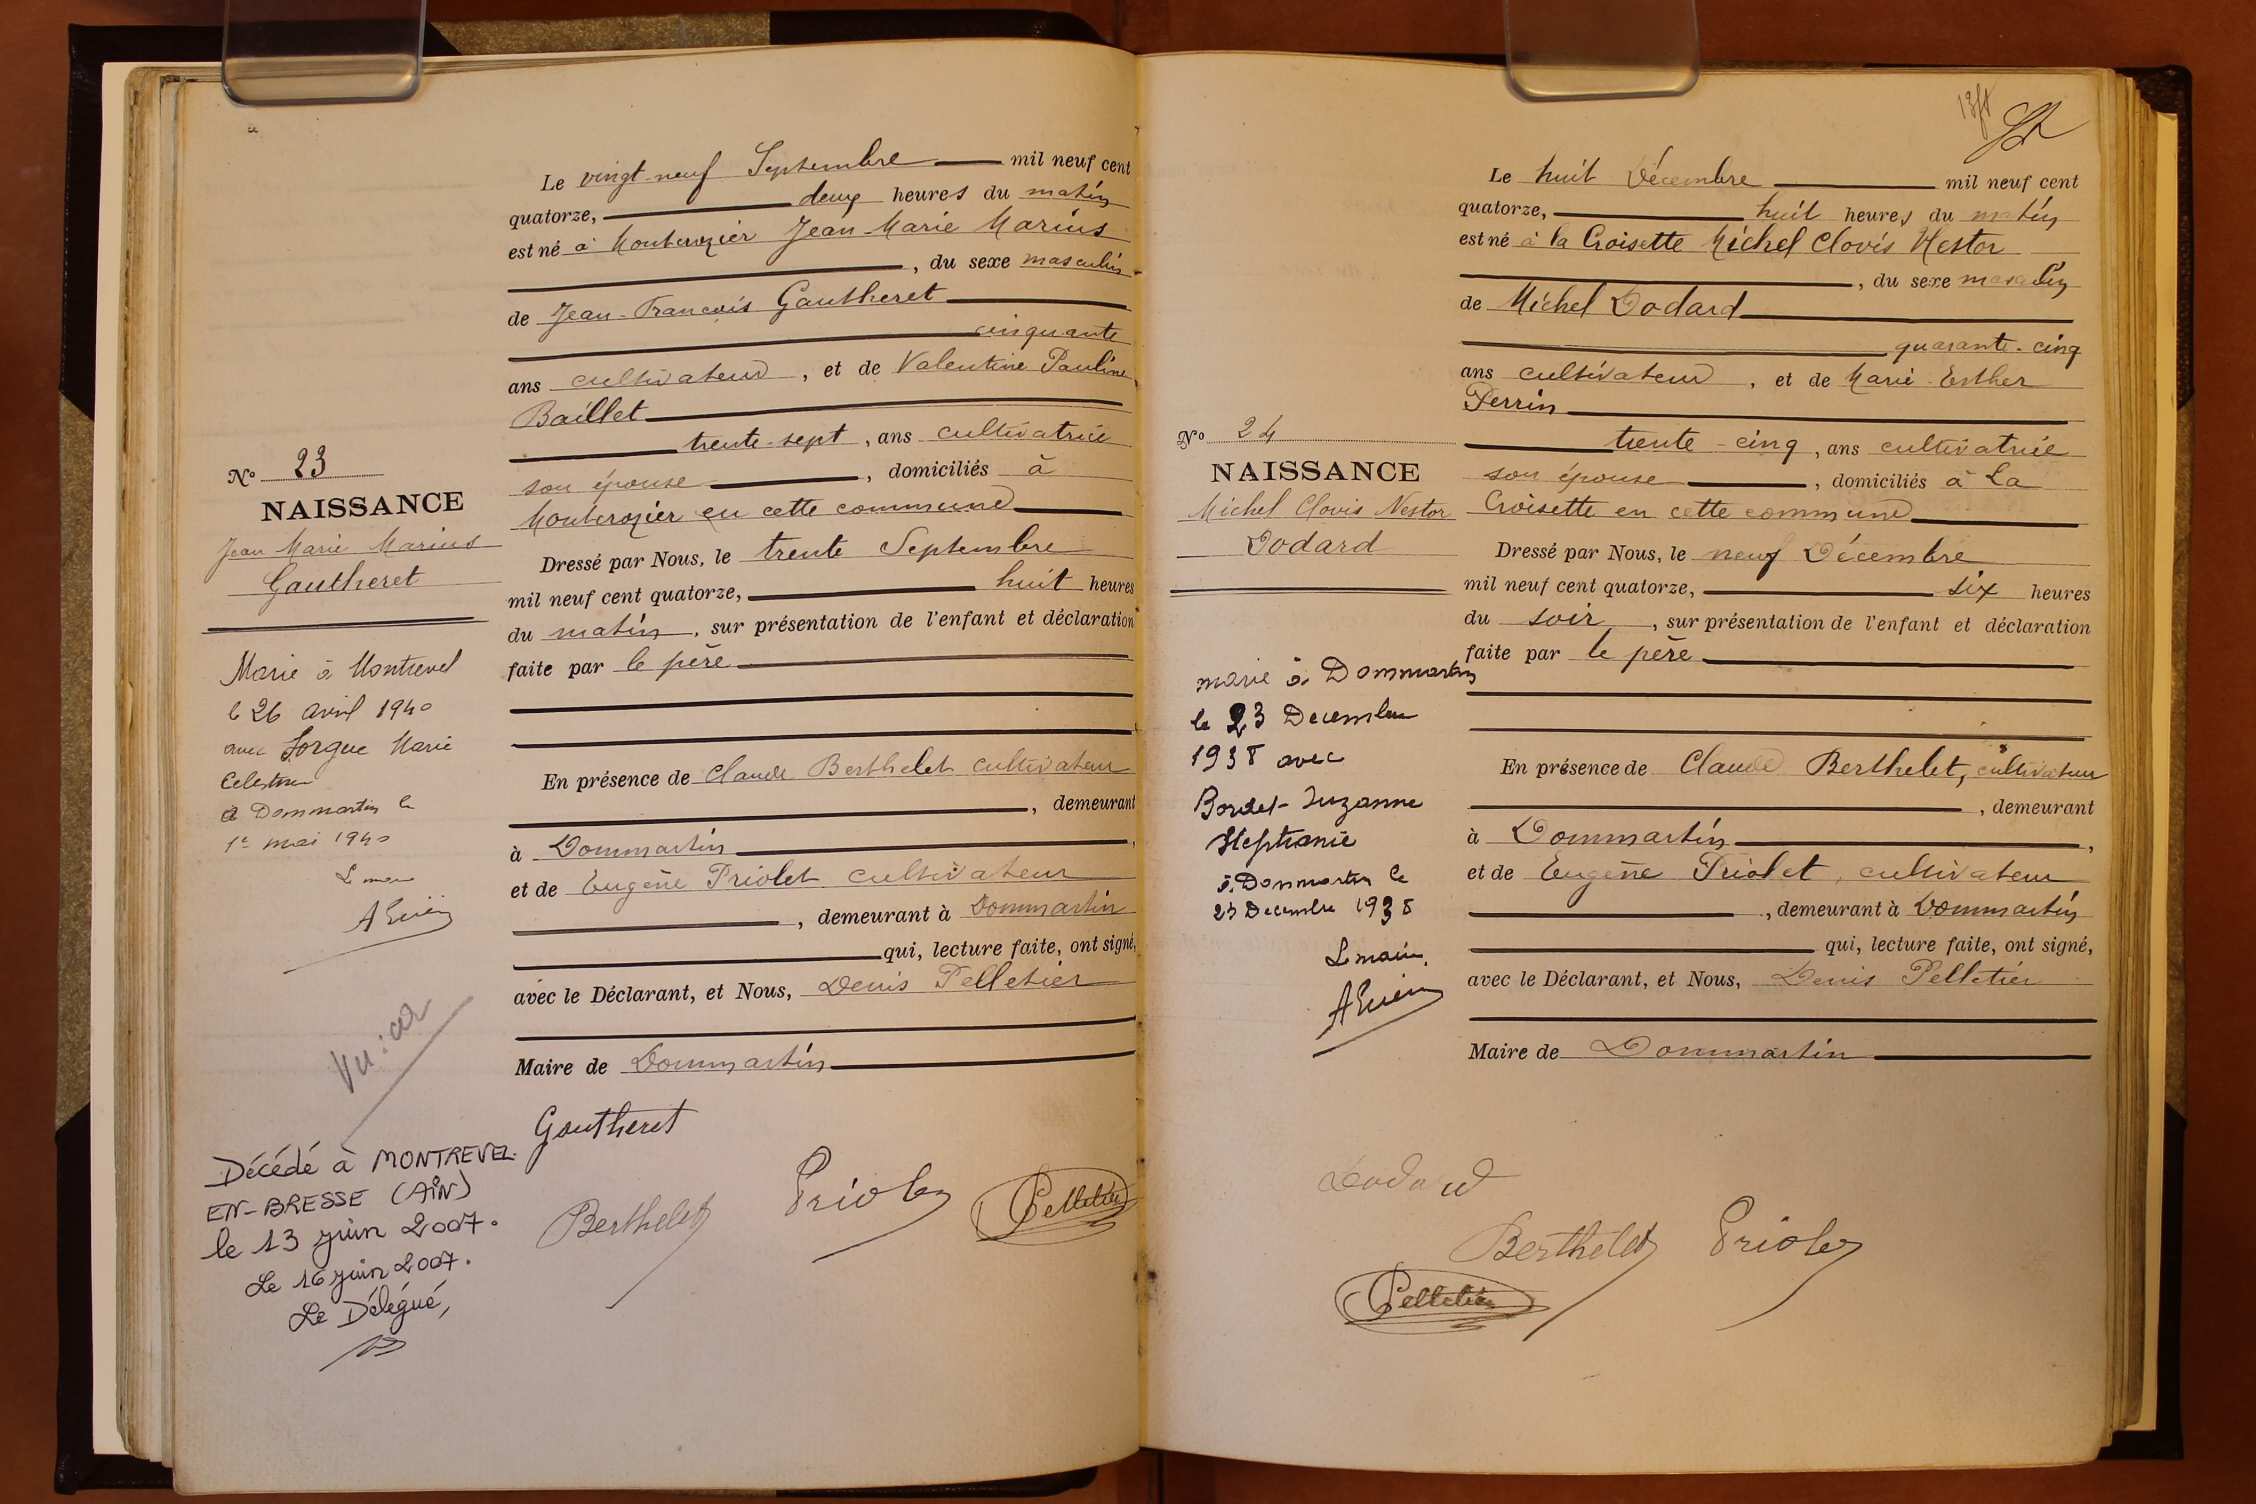 Le vingt-neuf Septembre mil neuf cent
quatorze, deux heures du matin
est né à Montcrozier Jean-Marie Marius
, du sexe masculin
de Jean-François Gautheret
cinquante
ans cultivateur, et de Valentine Pauline
Baillet
trente-sept, ans cultivatrice
son épouse, domiciliés à
Montcrozier en cette commune
Dressé par Nous, le trente Septembre
mil neuf cent quatorze, huit heures
du matin, sur présentation de l'enfant et déclaration
faite par le père
En présence de Claude Berthelet cultivateur
, demeurant
à Dommartin,
et de Eugène Priolet cultivateur
, demeurant à Dommartin
qui, lecture faite, ont signé,
avec le Déclarant, et Nous, Denis Pelletier
Maire de Dommartin
Gautheret
Berthelet Priolet Pelletier
No 23
NAISSANCE
Jean Marie Marius
Gautheret
Marié à Montrevel
le 26 avril 1940
avec Forgue Marie
Celestine
à Dommartin le
1er mai 1940
Le maire
Vu:
Décédé à MONTREVEL-
EN-BRESSE (AIN)
le 13 juin 2007.
Le 16 juin 2007.
Le Délégué,
Le huit Décembre mil neuf cent
quatorze, huit heures du matin
est né à la Croisette Michel Clovis Nestor
, du sexe masculin
de Michel Dodard
quarante-cinq
ans cultivateur, et de Marie Esther
Perrin
trente-cinq, ans cultivatrice
son épouse, domiciliés à La
Croisette en cette commune
Dressé par Nous, le neuf Décembre
mil neuf cent quatorze, six heures
du soir, sur présentation de l'enfant et déclaration
faite par le père
En présence de Claude Berthelet, cultivateur
, demeurant
à Dommartin,
et de Eugène Priolet, cultivateur
, demeurant à Dommartin
qui, lecture faite, ont signé,
avec le Déclarant, et Nous, Denis Pelletier
Maire de Dommartin
Dodard
Berthelet Priolet
Pelletier
No 24
NAISSANCE
Michel Clovis Nestor
Dodard
marié à Dommartin
le 23 Decembre
1938 avec
Bordet Suzanne
Stephanie
à Dommartin le
23 Decembre 1938
Le maire,